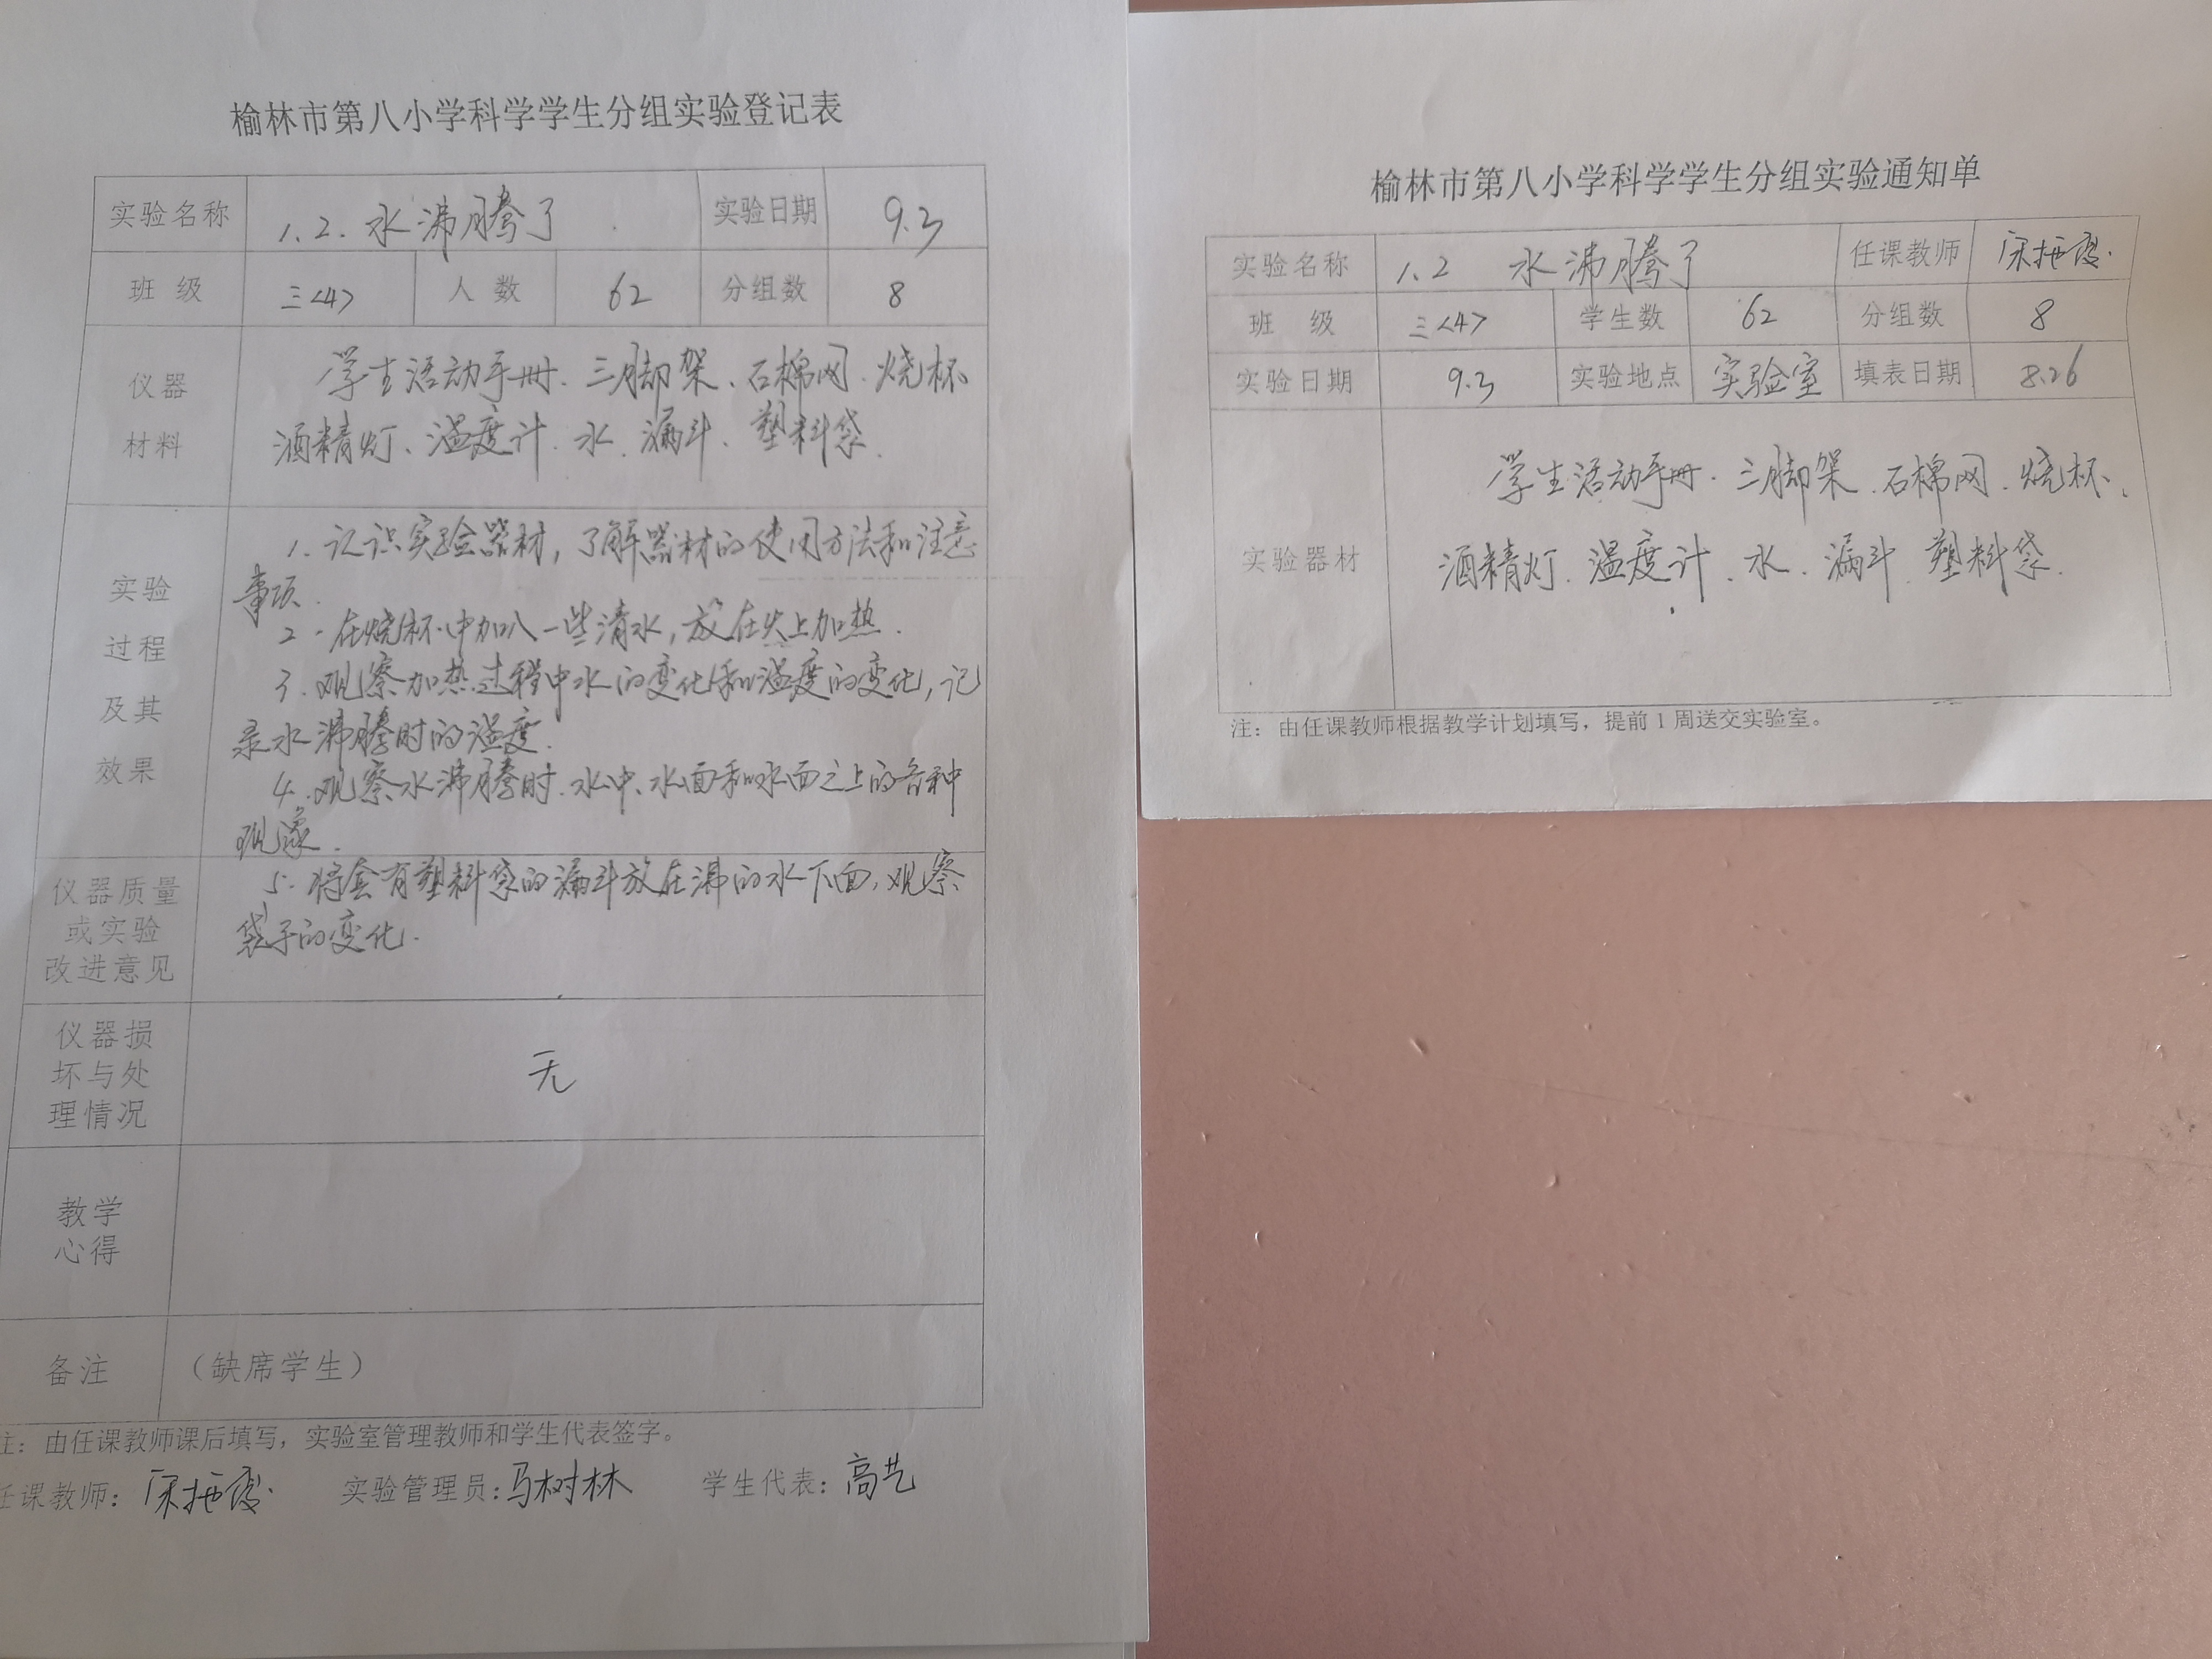 榆林市第八小学科学学生分组实验登记表
实验名称 1.2.水沸腾了 实验日期 9.3
班 级 三<4> 人 数 62 分组数 8
仪器
材料
学生活动手册、三脚架、石棉网、烧杯
酒精灯、温度计、水、漏斗、塑料袋.
实验
过程
及其
效果
1.认识实验器材,了解器材的使用方法和注意
事项.
2.在烧杯中加入一些清水,放在火上加热.
3.观察加热过程中水的变化和温度的变化,记
录水沸腾时的温度.
4.观察水沸腾时.水中、水面和水面之上的各种
现象.
仪器质量
或实验
改进意见
5.将套有塑料袋的漏斗放在沸的水下面,观察
袋子的变化.
仪器损
坏与处
理情况
无
教学
心得
备注 (缺席学生)
注:由任课教师课后填写,实验室管理教师和学生代表签字。
任课教师: 实验管理员:马树林 学生代表:高艺
榆林市第八小学科学学生分组实验通知单
实验名称 1.2 水沸腾了 任课教师
班 级 三<4> 学生数 62 分组数 8
实验日期 9.3 实验地点 实验室 填表日期 8.26
实验器材
学生活动手册.三脚架.石棉网.烧杯、
酒精灯.温度计.水.漏斗.塑料袋.
注:由任课教师根据教学计划填写,提前1周送交实验室。